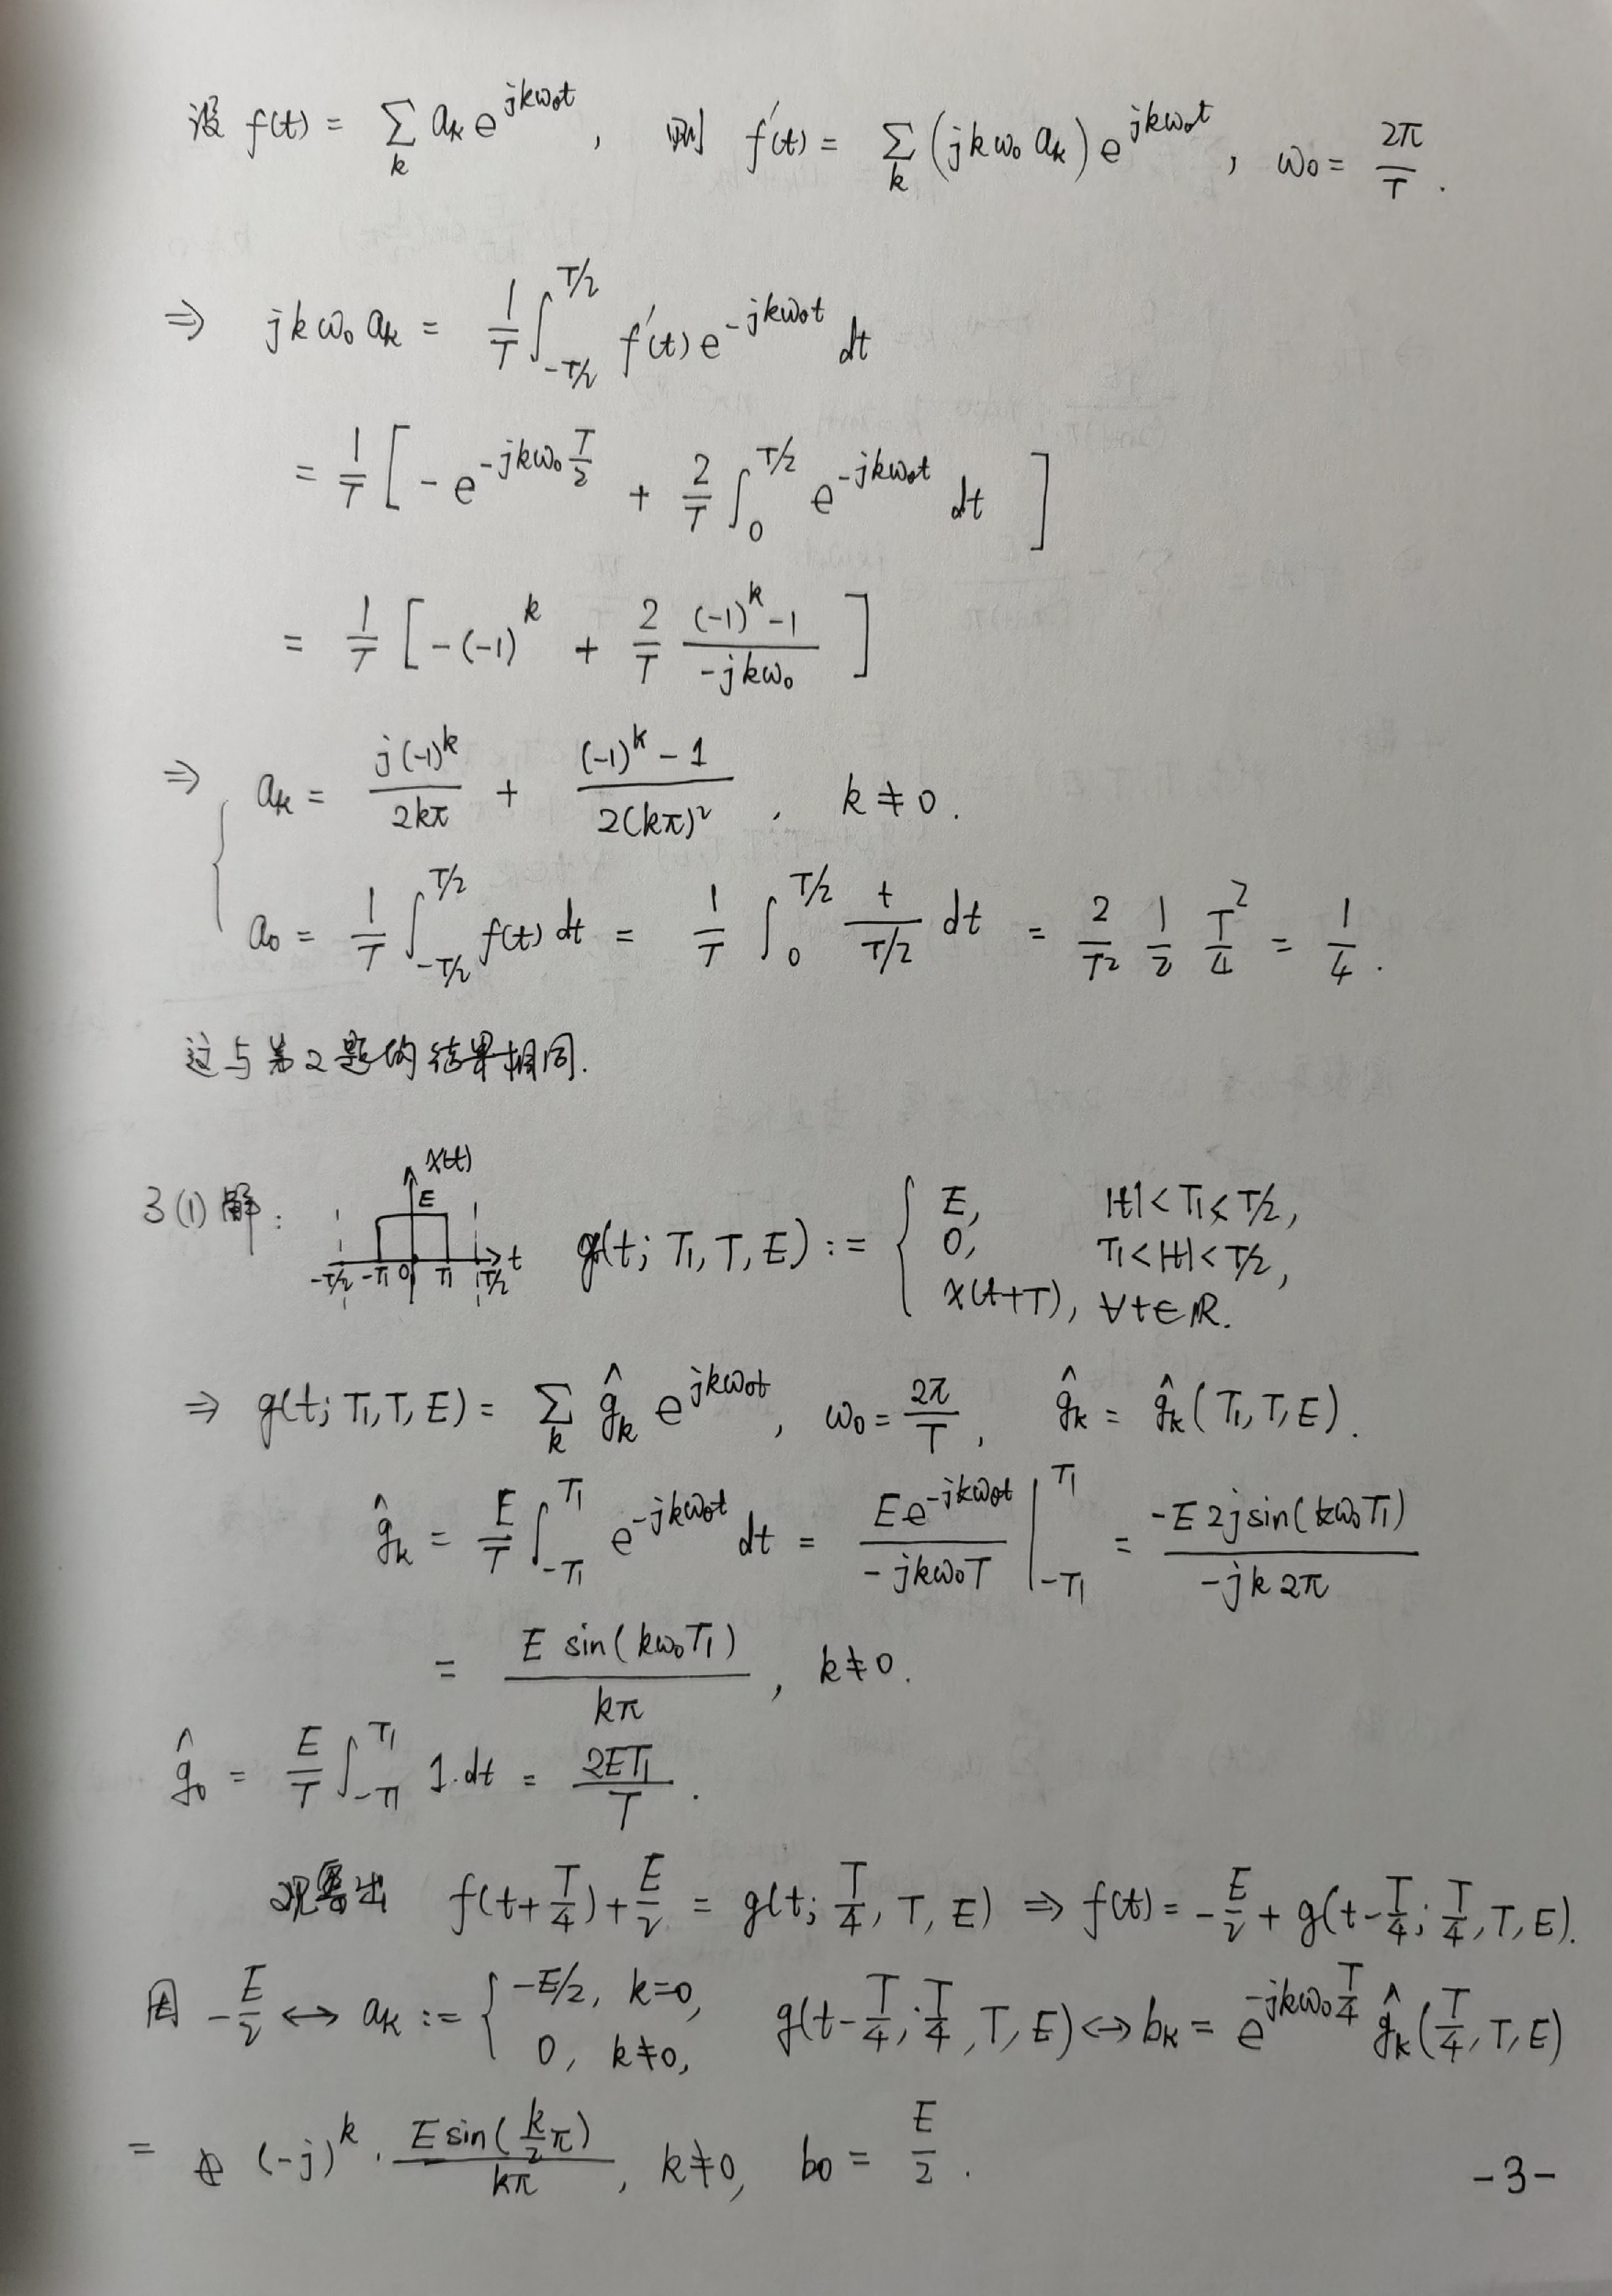 设 f(t) = ∑_k a_k e^{jkω₀t}, 则 f'(t) = ∑_k (jkω₀ a_k) e^{jkω₀t}, ω₀ = 2π/T.
⇒ jkω₀ a_k = 1/T ∫_{-T/2}^{T/2} f'(t) e^{-jkω₀t} dt
= 1/T [ -e^{-jkω₀ T/2} + 2/T ∫_0^{T/2} e^{-jkω₀t} dt ]
= 1/T [ -(-1)^k + 2/T ((-1)^k -1)/(-jkω₀) ]
⇒ { a_k = j(-1)^k/(2kπ) + ((-1)^k - 1)/(2(kπ)²), k≠0.
a₀ = 1/T ∫_{-T/2}^{T/2} f(t) dt = 1/T ∫_0^{T/2} t/(T/2) dt = 2/T² 1/2 T²/4 = 1/4.
这与第2题的结果相同.
3(1) 解: x(t) E -T/2 -T₁ 0 T₁ T/2 t g(t; T₁, T, E) := { E, |t| < T₁ < T/2,
0, T₁ < |t| < T/2,
x(t+T), ∀t∈R.
⇒ g(t; T₁, T, E) = ∑_k ĝ_k e^{jkω₀t}, ω₀ = 2π/T, ĝ_k = ĝ_k(T₁, T, E).
ĝ_k = E/T ∫_{-T₁}^{T₁} e^{-jkω₀t} dt = E e^{-jkω₀t}/(-jkω₀T) |_{-T₁}^{T₁} = -E 2j sin(kω₀T₁)/(-jk2π)
= E sin(kω₀T₁)/(kπ), k≠0.
ĝ₀ = E/T ∫_{-T₁}^{T₁} 1·dt = 2ET₁/T.
观察出 f(t+T/4) + E/2 = g(t; T/4, T, E) ⇒ f(t) = -E/2 + g(t-T/4; T/4, T, E).
因 -E/2 ↔ a_k := { -E/2, k=0, 0, k≠0, g(t-T/4; T/4, T, E) ↔ b_k = e^{-jkω₀ T/4} ĝ_k(T/4, T, E)
= (-j)^k · E sin(k/2 π)/(kπ), k≠0, b₀ = E/2.
-3-